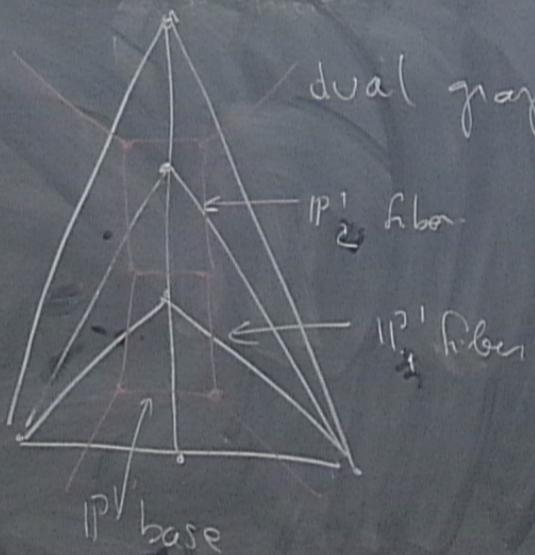 dual
P¹₂ fiber
P¹₁ fiber
P¹ base